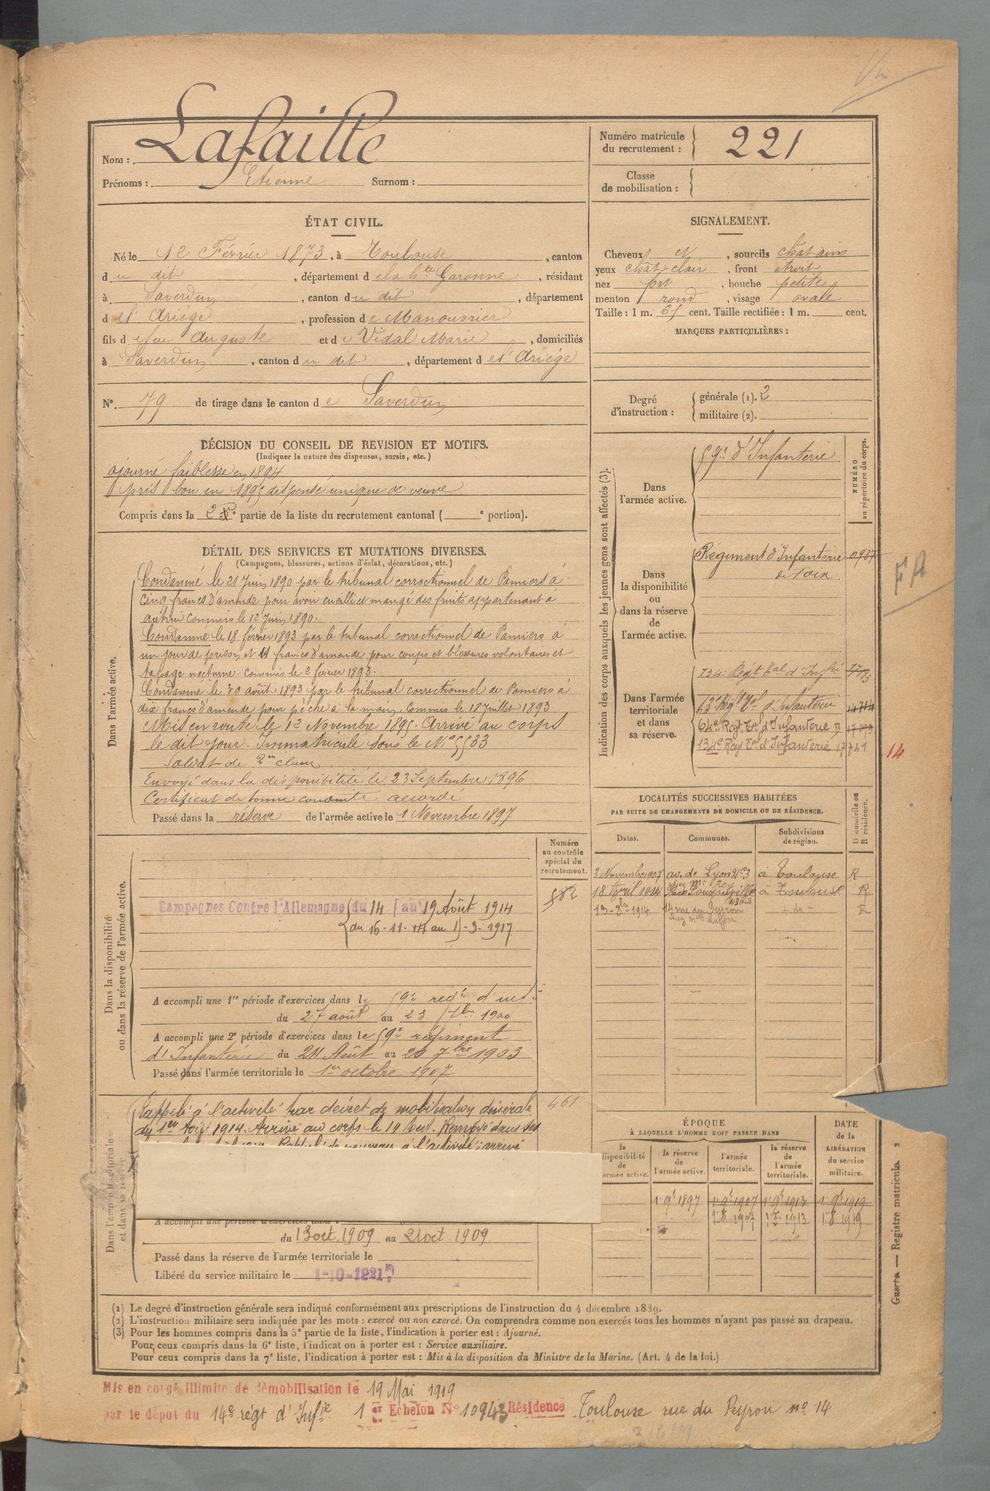 Nom : Lafaille
Prénoms : Etienne Surnom :
Numéro matricule du recrutement : 221
Classe de mobilisation :
ÉTAT CIVIL.
Né le 12 Février 1873, à Toulouse, canton
du dit, département de la hte Garonne, résidant
à Saverdun, canton du dit, département
d'Ariège, profession de Manouvrier
fils de feu Auguste et de Vidal Marie, domiciliés
à Saverdun, canton du dit, département d'Ariège
N° 79 de tirage dans le canton de Saverdun
SIGNALEMENT.
Cheveux , sourcils châtains
yeux chât clair, front étroit
nez , bouche petite
menton rond, visage ovale
Taille : 1 m. cent. Taille rectifiée : 1 m. cent.
MARQUES PARTICULIÈRES :
Degré d'instruction : générale (1). 2
militaire (2).
DÉCISION DU CONSEIL DE REVISION ET MOTIFS.
(Indiquer la nature des dispenses, sursis, etc.)
ajourné faiblesse en 1894
pris bon en 1895 dispensé unique de veuve
Compris dans la 2e partie de la liste du recrutement cantonal ( e portion).
DÉTAIL DES SERVICES ET MUTATIONS DIVERSES.
(Campagnes, blessures, actions d'éclat, décorations, etc.)
Dans l'armée active.
Condamné le 21 Juin 1890 par le tribunal correctionnel de Pamiers à
cinq francs d'amende pour avoir cueilli et mangé des fruits appartenant à
autrui commis le 12 Juin 1890.
Condamné le 18 février 1893 par le tribunal correctionnel de Pamiers à
un jour de prison et 11 francs d'amende pour coups et blessures volontaires et
tapage nocturne. Commis le 2 février 1893.
Condamné le 30 août 1893 par le tribunal correctionnel de Pamiers à
dix francs d'amende pour pêche à la main. Commis le 18 Juillet 1893.
Mis en route le 12 Novembre 1895. Arrivé au corps
le dit jour. Immatriculé sous le N° 5533
Soldat de 2me classe
Envoyé dans la disponibilité le 23 Septembre 1896
Certificat de bonne conduite accordé
Passé dans la réserve de l'armée active le 1 Novembre 1897
Indication des corps auxquels les jeunes gens sont affectés (3).
NUMÉRO au répertoire du corps.
Dans l'armée active.
59e d'Infanterie
Dans la disponibilité ou dans la réserve de l'armée active.
Régiment d'Infanterie
de Foix
FA
Dans l'armée territoriale et dans sa réserve.
134e Régt tal d'Infie
64e Régt Tal d'Infanterie
134e Régt Tal d'Infanterie
14
LOCALITÉS SUCCESSIVES HABITÉES
PAR SUITE DE CHANGEMENTS DE DOMICILE OU DE RÉSIDENCE.
Dates. Communes. Subdivisions de région. D domicile ou R résidence.
3 Novembre 1907 av. de Lyon N° 3 à Toulouse R
18 Avril 1914 à Toulouse R
1914 14 rue du Peyrou R
Dans la disponibilité ou dans la réserve de l'armée active.
Numéro au contrôle spécial du recrutement.
582
Campagnes Contre l'Allemagne du 14 au 19 Août 1914
du 16-11-14 au 15-3-1917
A accompli une 1re période d'exercices dans le 59e regt d'infie
du 27 août au 23 7bre 1900
A accompli une 2e période d'exercices dans le 59e régiment
d'Infanterie du 24 Août au 20 7bre 1903
Passé dans l'armée territoriale le 1er octobre 1907
Dans l'armée territoriale et dans sa réserve.
461
Rappelé à l'activité par décret de mobilisation générale
du 1er Août 1914. Arrivé au corps le 19 Renvoyé dans ses
à l'activité ; arrivé
A accompli une période d'exercices dans
du 13 oct. 1909 au 21 oct 1909
Passé dans la réserve de l'armée territoriale le
Libéré du service militaire le 1-10-1921
ÉPOQUE
À LAQUELLE L'HOMME DOIT PASSER DANS
la disponibilité de l'armée active. la réserve de l'armée active. l'armée territoriale. la réserve de l'armée territoriale. DATE de la LIBÉRATION du service militaire.
1 9e 1897 1 9e 1907 1 9e 1913 1 9e 1919
1 8 1907 1 8 1919
Guerre. — Registre matricule. 2
(1) Le degré d'instruction générale sera indiqué conformément aux prescriptions de l'instruction du 4 décembre 1889.
(2) L'instruction militaire sera indiquée par les mots : exercé ou non exercé. On comprendra comme non exercés tous les hommes n'ayant pas passé au drapeau.
(3) Pour les hommes compris dans la 5e partie de la liste, l'indication à porter est : Ajourné.
Pour ceux compris dans la 6e liste, l'indication à porter est : Service auxiliaire.
Pour ceux compris dans la 7e liste, l'indication à porter est : Mis à la disposition du Ministre de la Marine. (Art. 4 de la loi.)
Mis en congé illimité de démobilisation le 19 Mai 1919
par le dépôt du 14e régt d'Infie 1er Échelon N° 10943 Résidence Toulouse rue du Peyrou n° 14